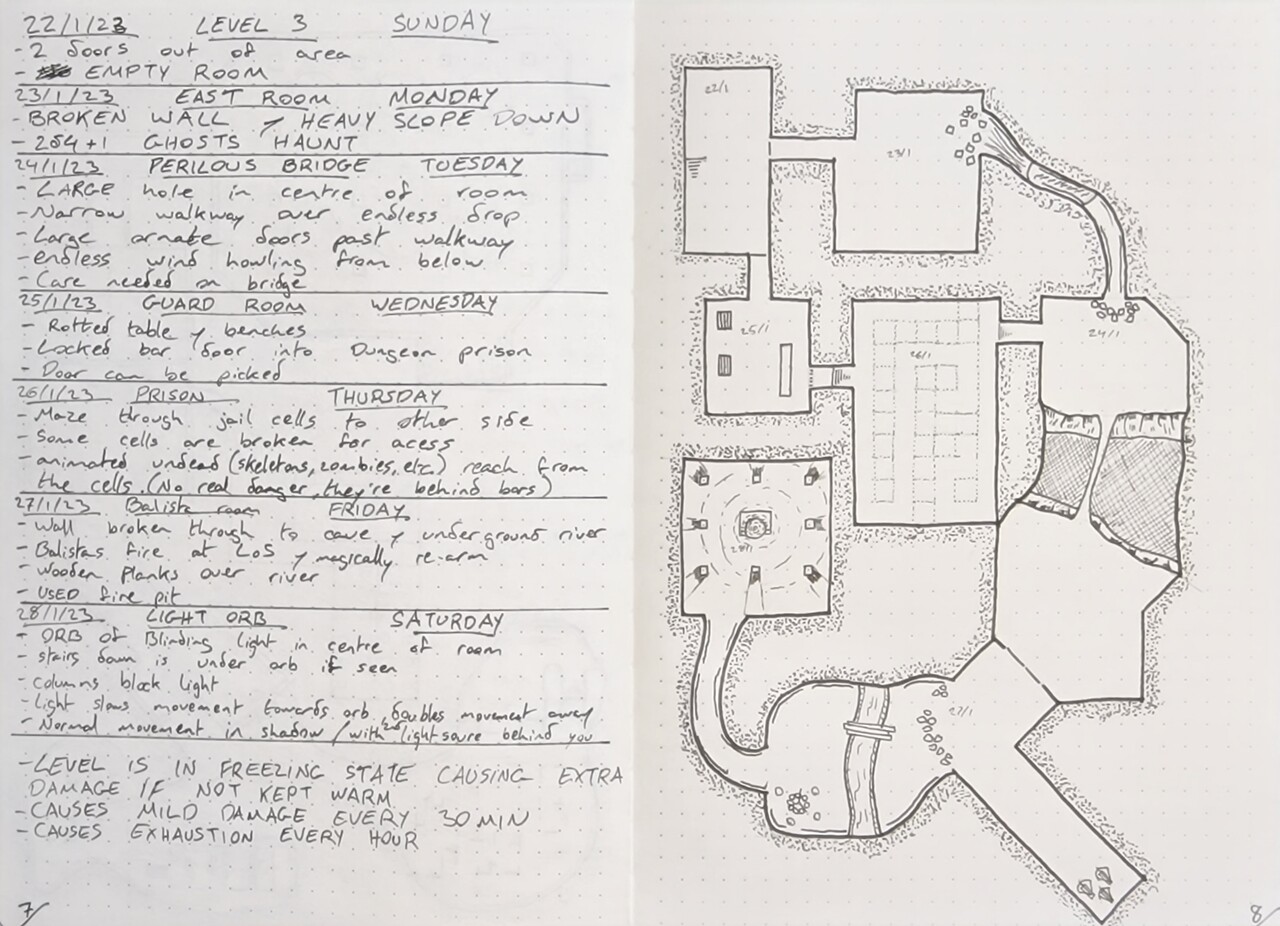 22/1/23 LEVEL 3 SUNDAY
- 2 doors out of area
- EMPTY ROOM
23/1/23 EAST ROOM MONDAY
- BROKEN WALL y HEAVY SLOPE DOWN
- 254 + 1 GHOSTS HAUNT
24/1/23 PERILOUS BRIDGE TUESDAY
- LARGE hole in centre of room
- Narrow walkway over endless drop
- Large ornate doors past walkway
- endless wind howling from below
- Care needed on bridge
25/1/23 GUARD ROOM WEDNESDAY
- Rotted table y benches
- Locked bar door into Dungeon prison
- Door can be picked
26/1/23 PRISON THURSDAY
- Maze through jail cells to other side
- Some cells are broken for acess
- animated undead (skeletons, zombies, etc.) reach from
the cells. (No real danger, they're behind bars)
27/1/23 Balista room FRIDAY
- Wall broken through to cave y underground river
- Balistas fire at LoS y magically re-arm
- Wooden Planks over river
- USED fire pit
28/1/23 LIGHT ORB SATURDAY
- ORB of Blinding light in centre of room
- stairs down is under orb if seen
- Columns block light
- Light slows movement towards orb, doubles movement away
- Normal movement in shadow / with 2nd light soure behind you
- LEVEL IS IN FREEZING STATE CAUSING EXTRA
DAMAGE IF NOT KEPT WARM
- CAUSES MILD DAMAGE EVERY 30 MIN
- CAUSES EXHAUSTION EVERY HOUR
7/
22/1
23/1
24/1
25/1
26/1
28/1
27/1
8/